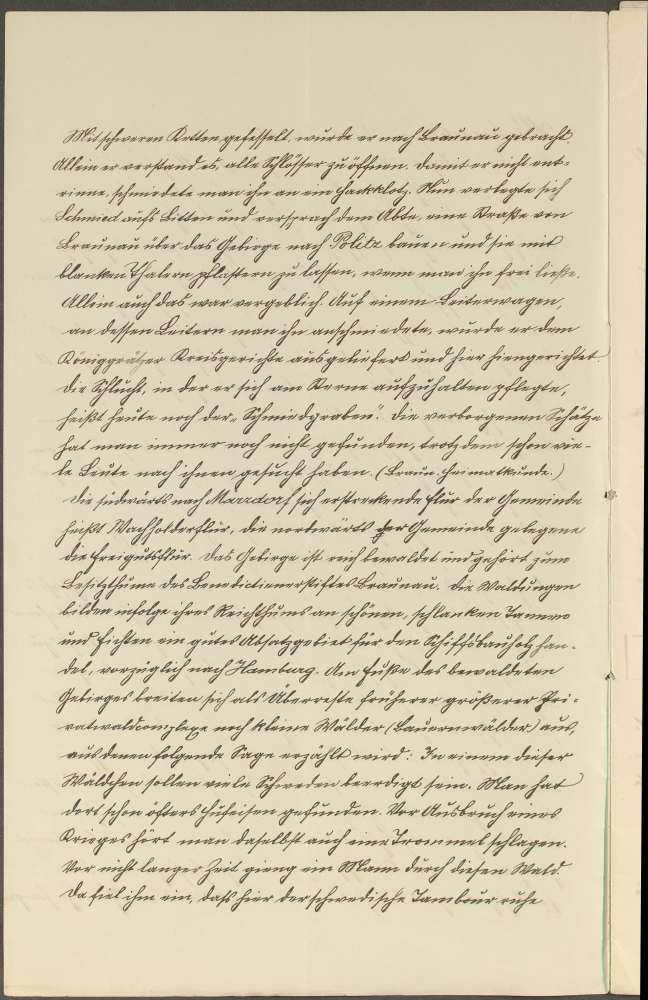 Mit schweren Ketten gefesselt, wurde er nach Braunau gebracht.
Allein er verstand es, alle Schlösser zu öffnen. Damit er nicht ent-
rinne, schmiedete man ihn an ein Hackklotz. Nun verlegte sich
Schmied aufs Bitten und versprach dem Abte, eine Straße von
Braunau über das Gebirge nach Politz bauen und sie mit
blanken Thalern pflastern zu lassen, wenn man ihn frei ließe.
Allein auch das war vergeblich. Auf einem Leiterwagen,
an dessen Leitern man ihn anschmiedete, wurde er dem
Königgrätzer Kreisgerichte ausgeliefert und hier hiengerichtet.
Die Schlucht, in der er sich am Sterne aufzuhalten pflegte,
heißt heute noch der „Schmiedgraben". Die verborgenen Schätze
hat man immer noch nicht gefunden, trotzdem schon vie-
le Leute nach ihnen gesucht haben. (Braun. Heimatkunde.)
Die südwärts nach Märzdorf sich erstreckende Flur der Gemeinde
heißt Wachholderflur, die nordwärts der Gemeinde gelegene
die Freigutsflur. Das Gebirge ist reich bewaldet und gehört zum
Besitzthume des Benedictienerstiftes Braunau. Die Waldungen
bilden infolge ihres Reichthums an schönen, schlanken Tannen
und Fichten ein gutes Absatzgebiet für den Schiffsbauholzhan-
del, vorzüglich nach Hamburg. Am Fuße des bewaldeten
Gebirges breiten sich als Überreste früherer größerer Pri-
vatwaldcomplexe noch kleine Wälder (Bauernwälder) aus,
aus denen folgende Sage erzählt wird: In einem dieser
Wäldchen sollen viele Schweden beerdigt sein. Man hat
dort schon öfters Hufeisen gefunden. Vor Ausbruch eines
Krieges hört man daselbst auch eine Trommel schlagen.
Vor nicht langer Zeit gieng ein Mann durch diesen Wald.
Da fiel ihm ein, daß hier der schwedische Tambour ruhe